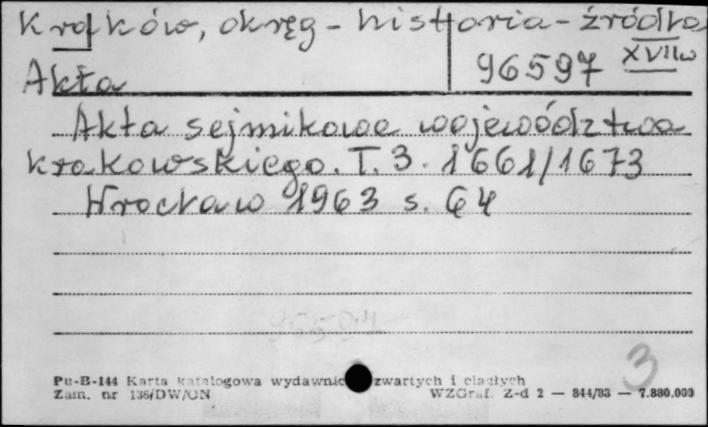 Kraków, okręg - historia - źródła
XVII w
96597
Akta
Akta sejmikowe województwa
krakowskiego. T. 3. 1661/1673
Wrocław 1963 s. 64
3
Pu-B-144 Karta katalogowa wydawnic zwartych i ciągłych
Zam. nr 136/DW/ON WZGraf. Z-d 2 — 844/83 — 7.880.000